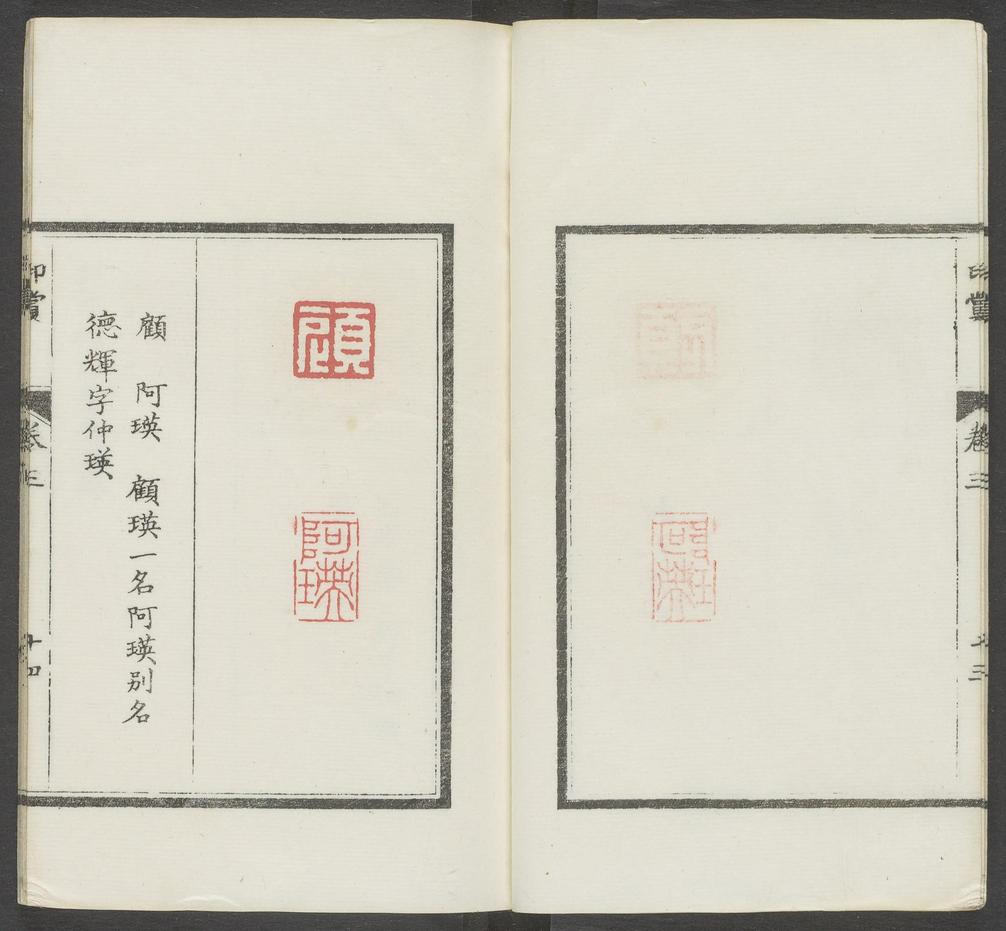 印賞
卷三
十三
顧
阿瑛
顧　阿瑛　顧瑛一名阿瑛別名
德輝字仲瑛
印賞
卷三
十四